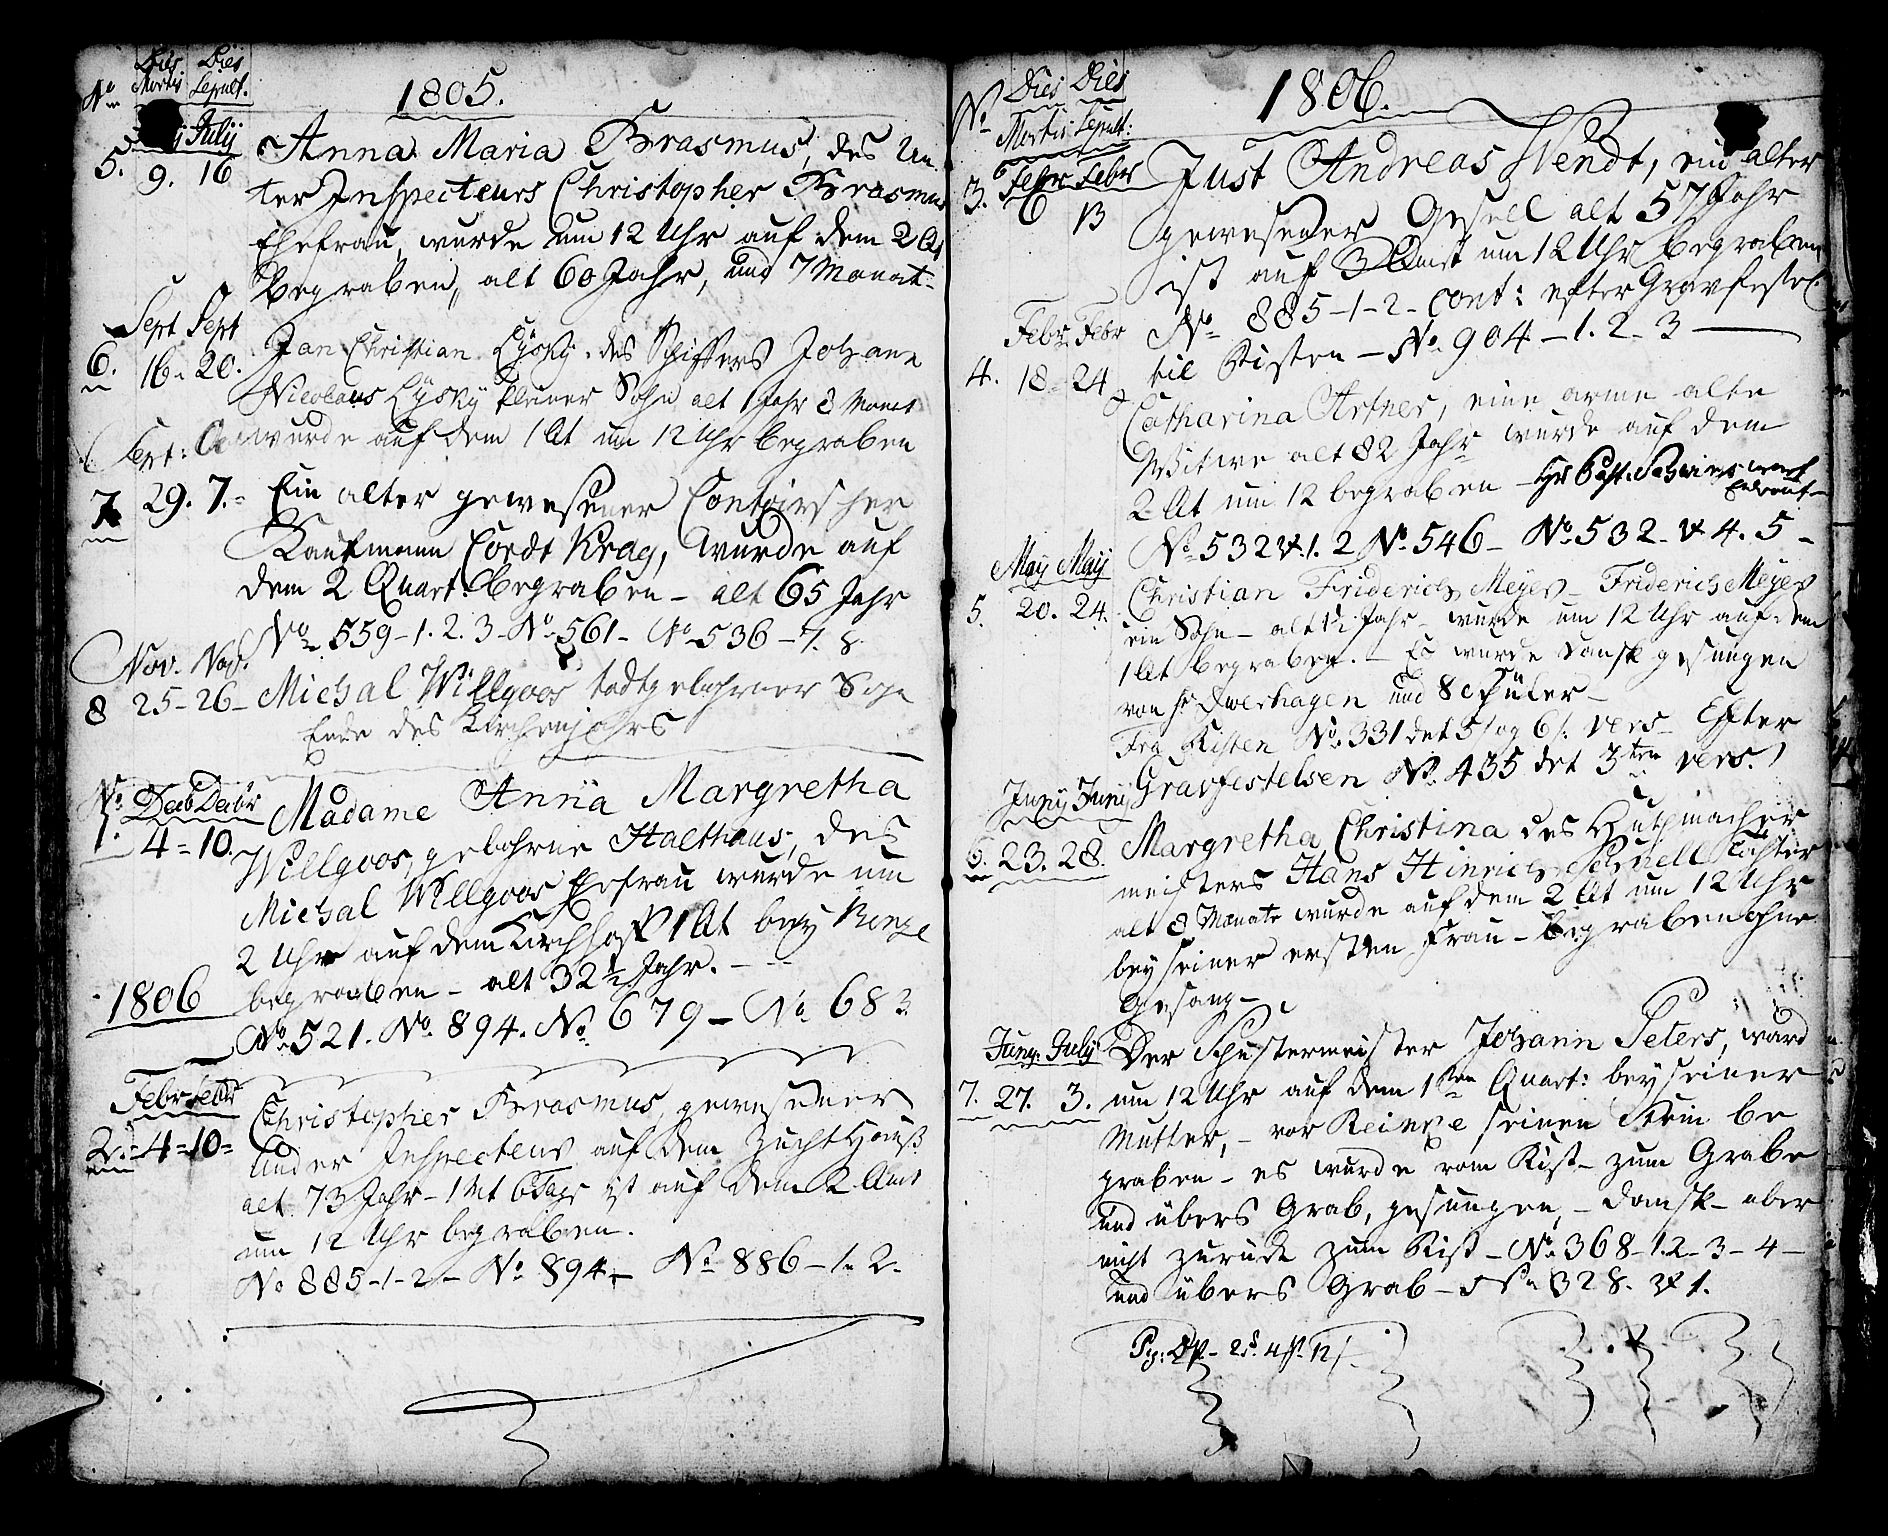 No Dies Mortis Dies Sepult.
1805.
July
5. 9. 16 Anna Maria Erasmus, des Un-
ter Inspecteurs Christopher Erasmus
Ehefrau, wurde um 12 Uhr auf dem 2 Qt
begraben, alt 60 Jahr, und 7 Monat-
Sept Sept
6. 16 - 20. Jan Christian Lysky, des Schiffers Johann
Nicolaus Lysky kleiner Sohn alt 1 Jahr 8 Monat
wurde auf dem 1 Qt um 12 Uhr begraben
Sept:
7 29. 7. - Ein alter gewesener Contoirscher
Kaufmann Cordt Krag, wurde auf
dem 2 Quart. begraben - alt 65 Jahr
No 559 - 1. 2. 3 - No 561 - No 536 - 7. 8.
Nov. Nov.
8 25 - 26 - Michal Willgoos todtgebohrner Sohn
Ende des Kirchenjahrs
No Decb Decbr
1. 4 = 10. Madame Anna Margretha
Willgoos, gebohrne Halthaus, des
Michal Willgoos Ehefrau wurde um
2 Uhr auf dem Kirchhoff 1 Qt bey
begraben - alt 32 1/2 Jahr. - -
1806
No 521. No 894. No 679 - No 683.
Febr Febr
2. - 4 = 10 = Christopher Erasmus, gewesener
Under Inspecteur auf dem Zuchthauß
alt 73 Jahr - 1 Mt 6 Tage ist auf dem 2 Quart
um 12 Uhr begraben.
No 885 - 1 - 2 - No 894 - No 886 - 1. 2.
No Dies Mortis Dies Sepult:
1806.
Febr Febr
3. 6 13 Just Andreas Wendt, ein alter
gewesener Gesell alt 57 Jahr
ist auf 3 Quart um 12 Uhr begraben
No 885 - 1 - 2 - cont: efter Gravfestel.
til Kisten - No 904 - 1. 2 - 3
Febr Febr
4. 18 - 24 Catharina Artner, eine arme alte
Witwe alt 82 Jahr wurde auf dem
2 Qt um 12 begraben -
No 532 V. 1. 2 No 546 - No 532 - V 4. 5 -
May May
5. 20. 24. Christian Friderich Meyer - Friderich Meyer
ein Sohn - alt 1 1/2 Jahr - wurde um 12 Uhr auf dem
1 Qt begraben. - Es wurde Dansk gesungen
von Hr Dverhagen und 8 Schüler -
Fra Kisten No 331 det 5 og 6 vers - Efter
Gravfestelsen No 435 det 3ten vers.
Juny Juny
6. 23. 28. Margretha Christina des Huthmacher
meisters Hans Hinrich Schnell Tochter
alt 8 Monate wurde auf dem 2 Qt um 12 Uhr
bey seiner ersten Frau - begraben ohne
Gesang -
Juny. July
7. 27. 3. Der Schustermeister Johann Peters, ward
um 12 Uhr auf dem 1ten Quart: bey seiner
Mutter, - vor Reinke seinen Stein be
graben - es wurde vom Kist - zum Grabe
und übers Grab, gesungen, - Dansk - aber
nicht zurück zum Kist - No 368 - 1. 2 - 3 - 4 -
und übers Grab - No 328. V 1.